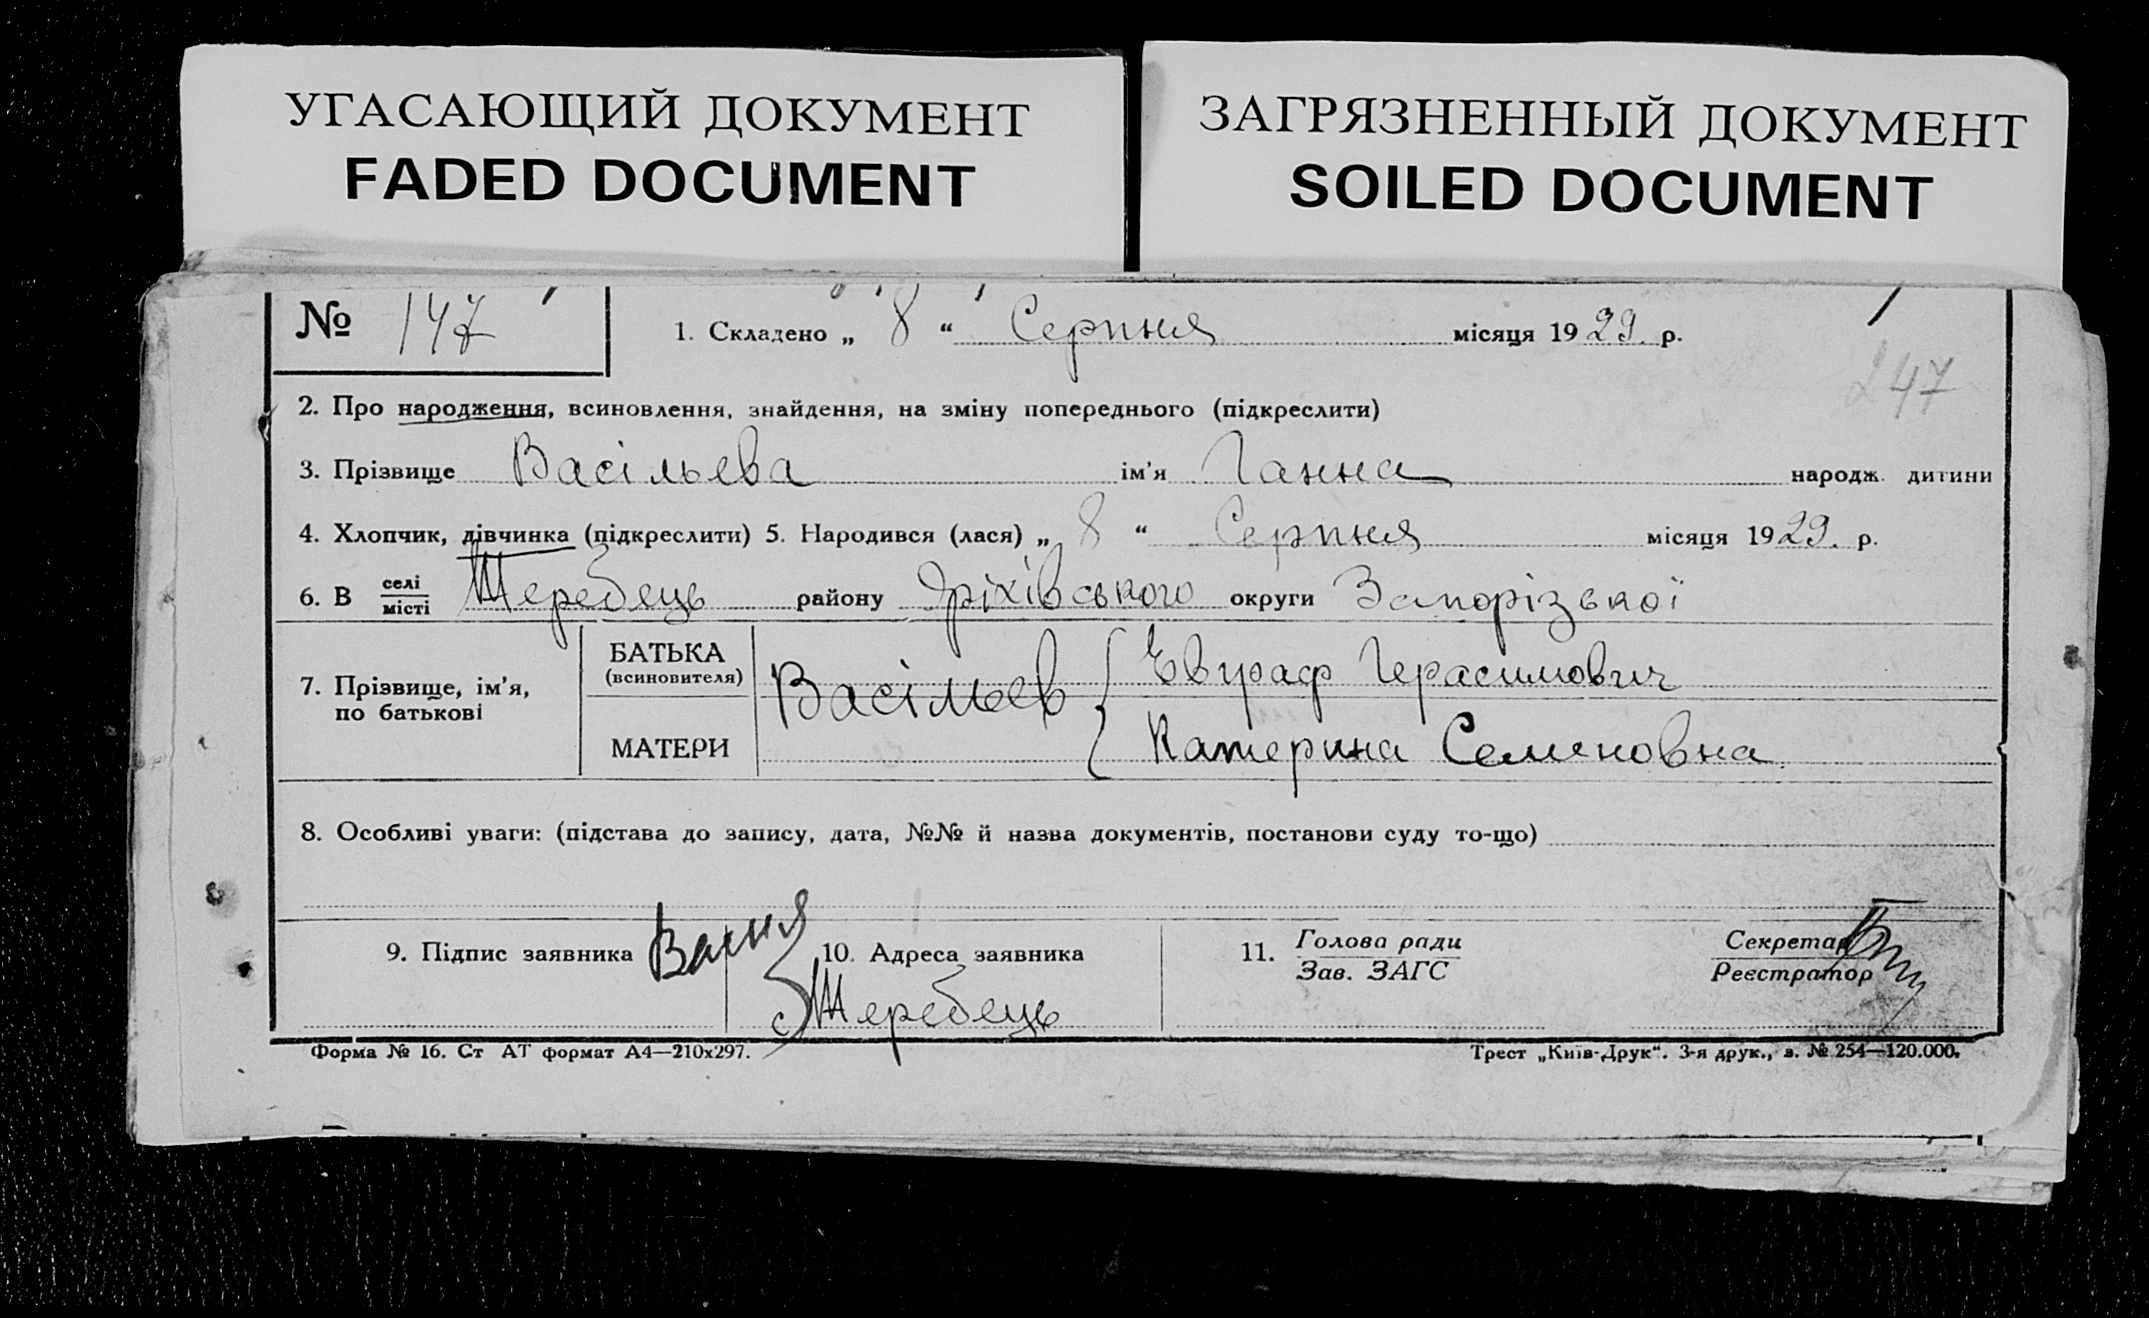 УГАСАЮЩИЙ ДОКУМЕНТ
FADED DOCUMENT
ЗАГРЯЗНЕННЫЙ ДОКУМЕНТ
SOILED DOCUMENT
№ 147
1. Складено „ 8 “ Серпня місяця 1929. р.
247
2. Про народження, всиновлення, знайдення, на зміну попереднього (підкреслити)
3. Прізвище Васільева ім'я Ганна народж. дитини
4. Хлопчик, дівчинка (підкреслити) 5. Народився (лася) „ 8 “ Серпня місяця 1929. р.
6. В селі місті Жеребець району Оріхівського округи Запорізької
7. Прізвище, ім'я, по батькові
БАТЬКА (всиновителя) Васільев Евграф Герасимович
МАТЕРИ Катерина Семеновна
8. Особливі уваги: (підстава до запису, дата, №№ й назва документів, постанови суду то-що)
9. Підпис заявника
10. Адреса заявника
с Жеребець
11. Голова ради
Зав. ЗАГС
Секретар
Реєстратор
Форма № 16. Ст АТ формат А4—210х297.
Трест „Київ-Друк“. 3-я друк., з. № 254—120.000.